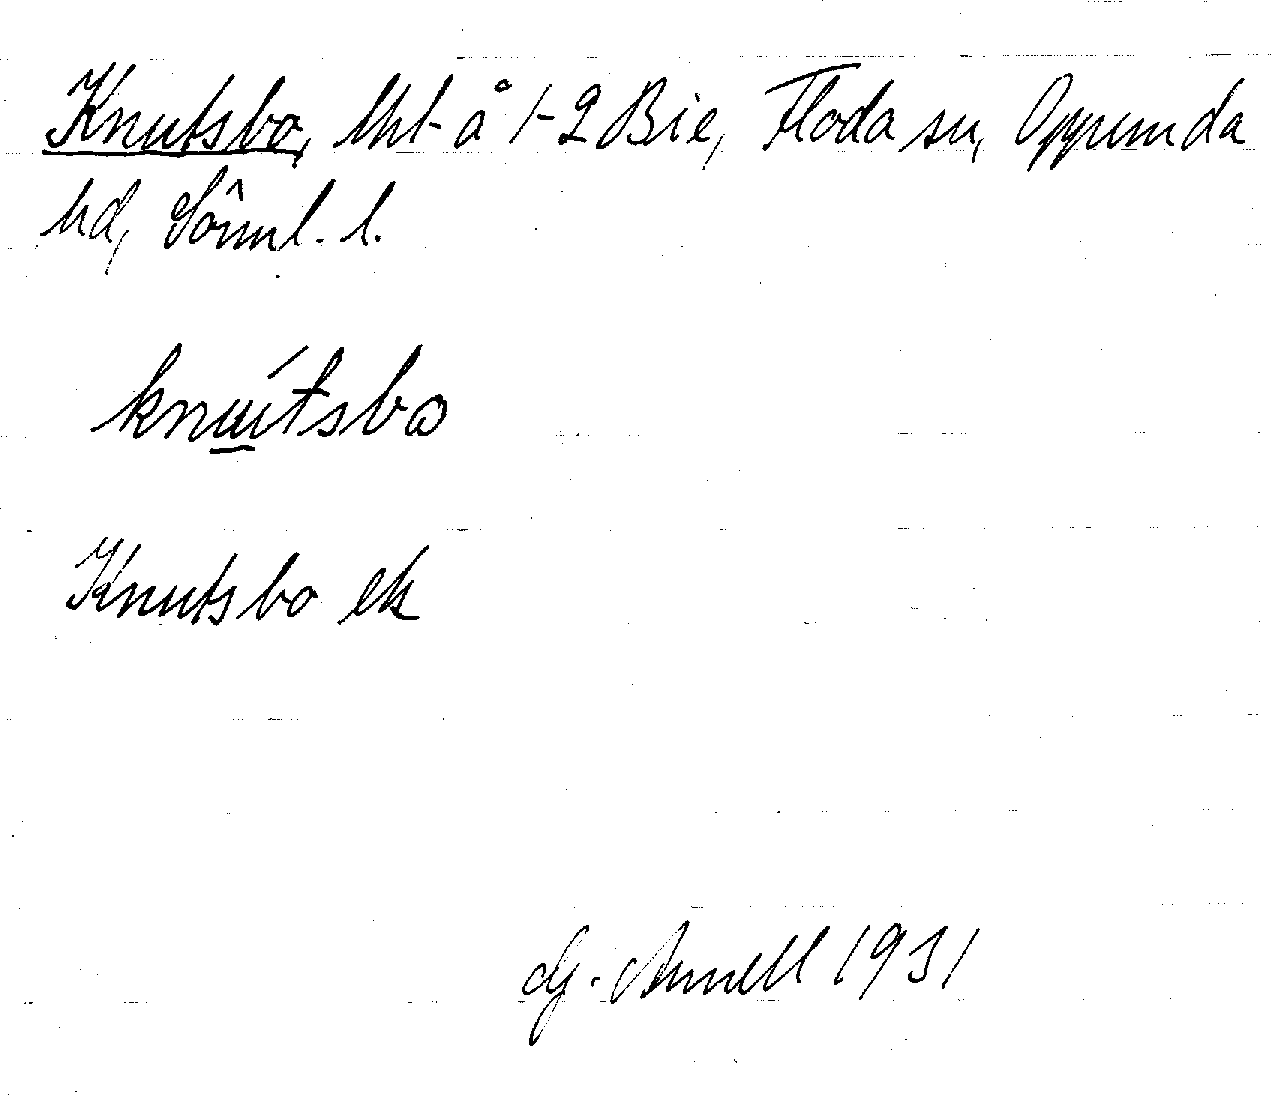 Knutsbo, lht å 1-2 Bie, Floda sn, Oppunda
hd, Sörml. l.
knu̲ítsbo
Knutsbo ek
G. Arnell 1931